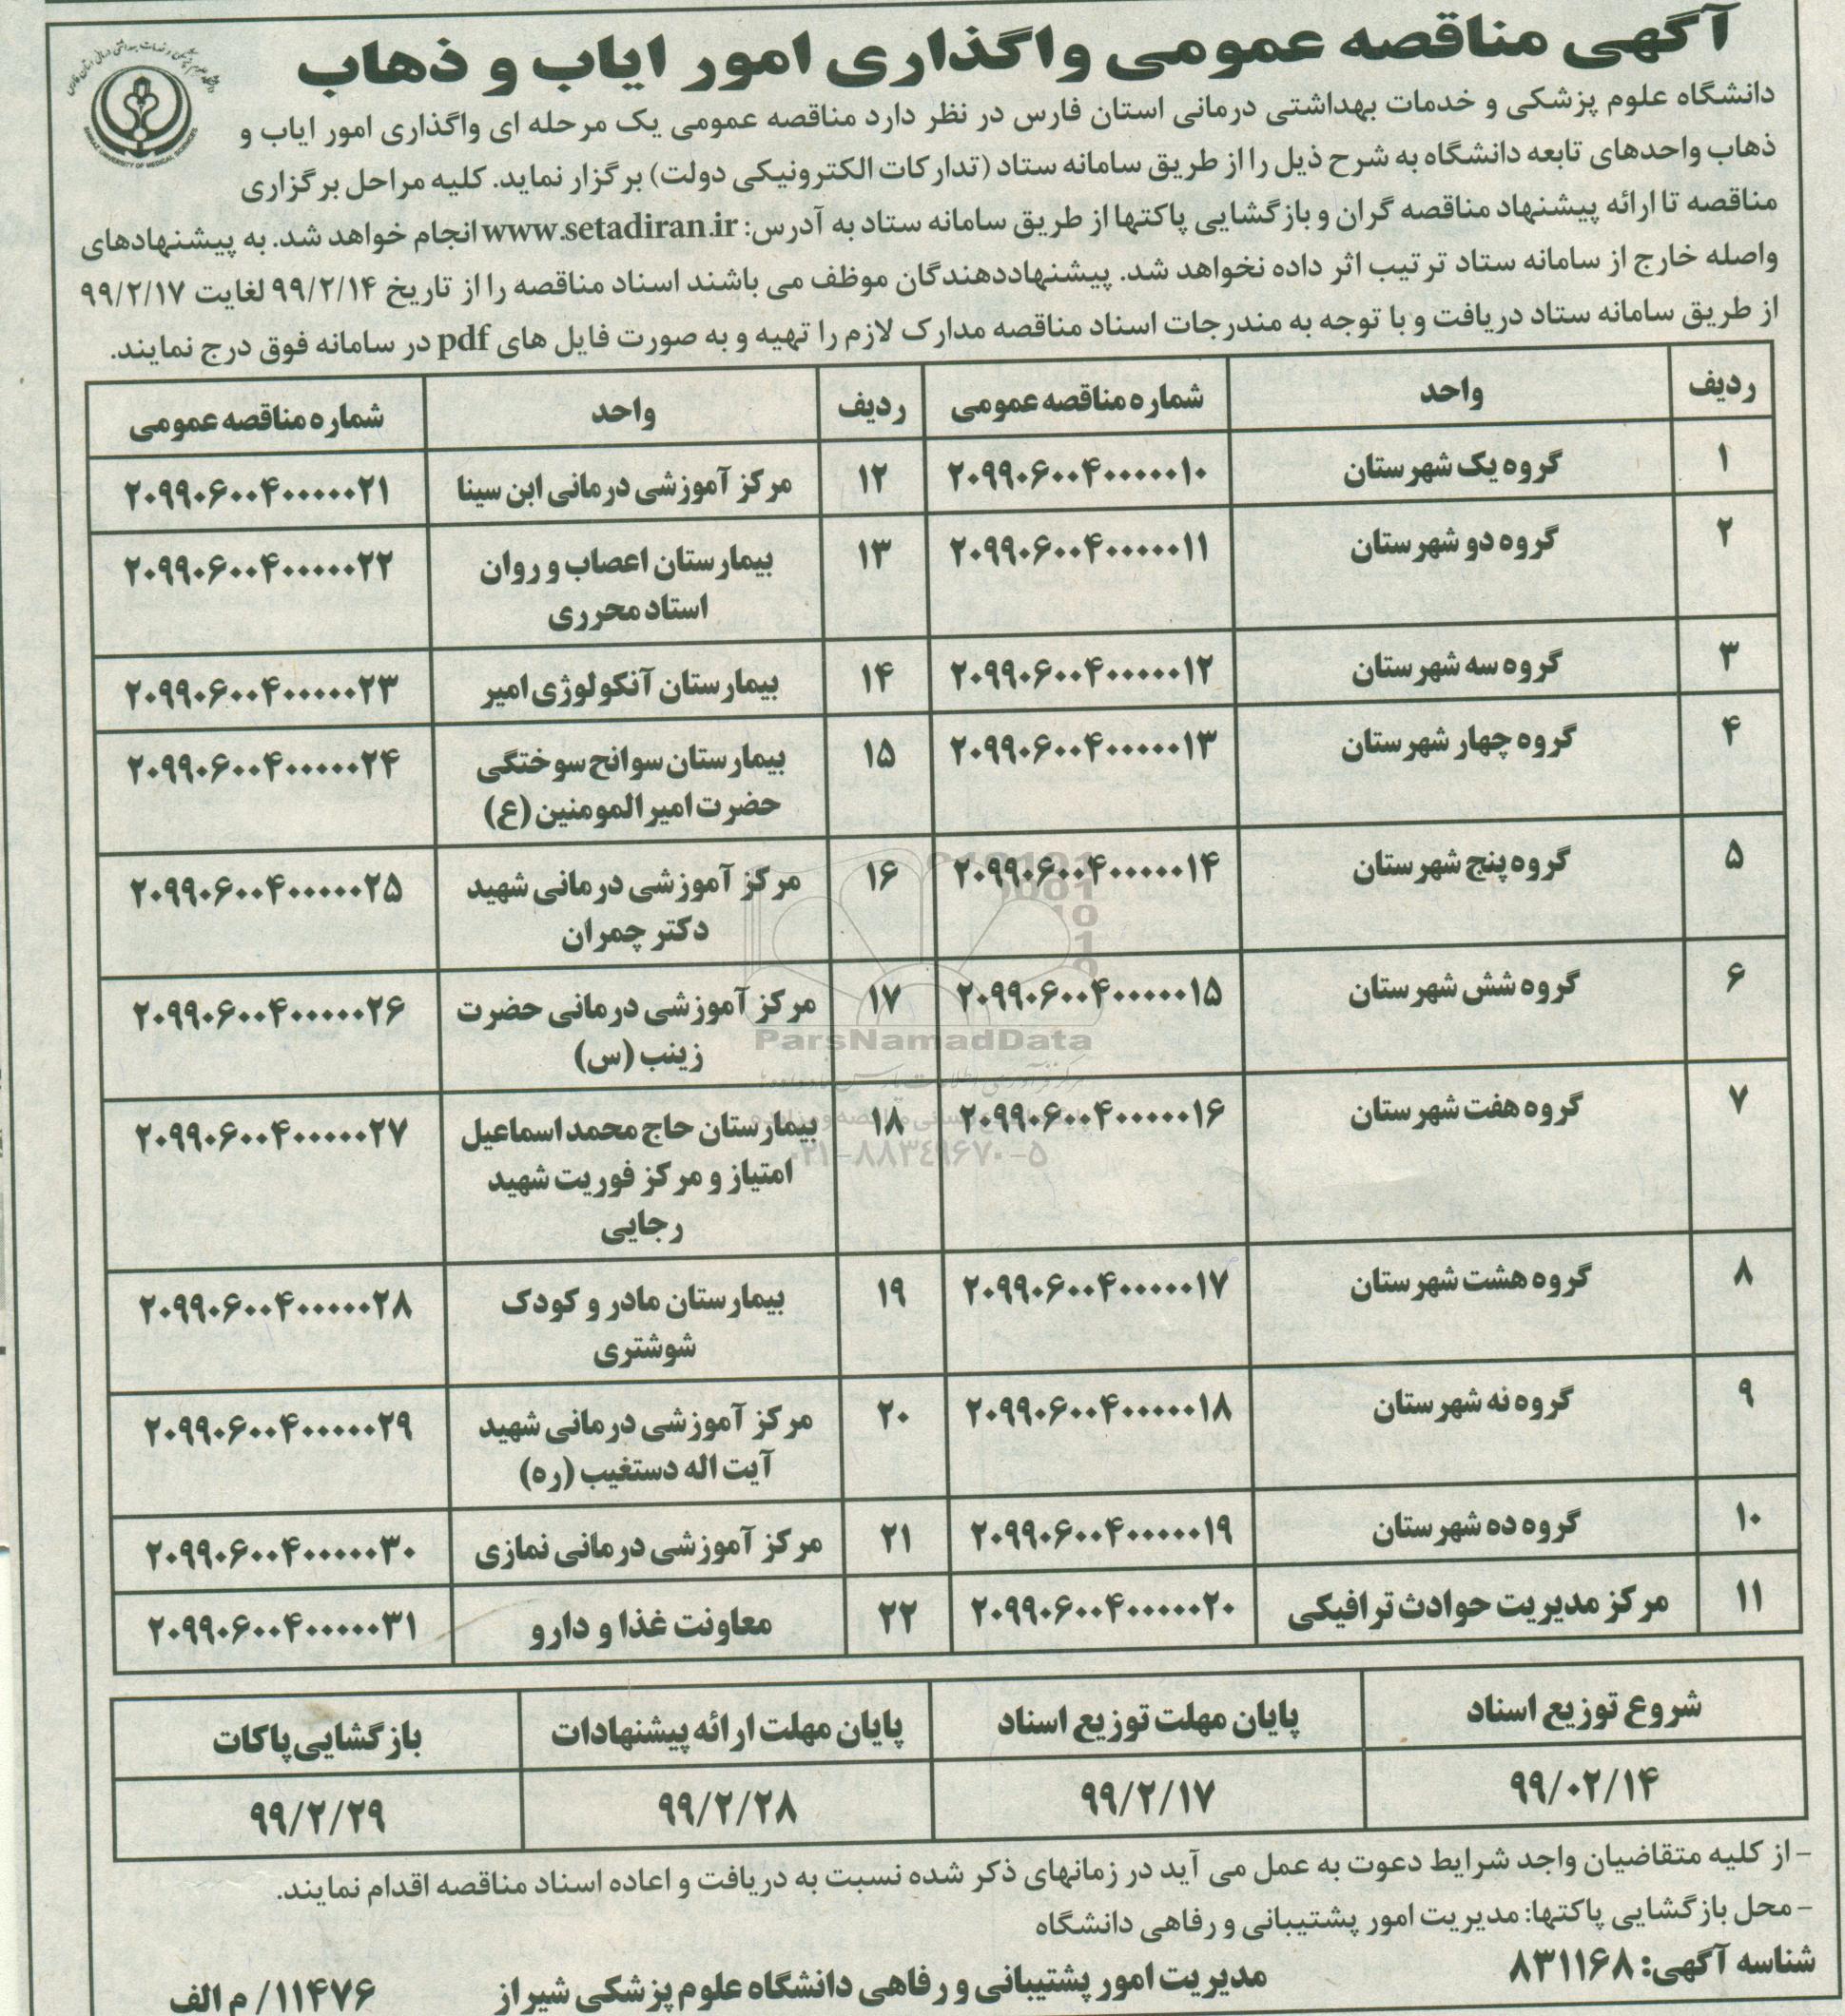 آگهی مناقصه عمومی واگذاری امور ایاب و ذهاب
SHIRAZ UNIVERSITY OF MEDICAL SCIENCES
دانشگاه علوم پزشکی و خدمات بهداشتی درمانی استان فارس در نظر دارد مناقصه عمومی یک مرحله ای واگذاری امور ایاب و
ذهاب واحدهای تابعه دانشگاه به شرح ذیل را از طریق سامانه ستاد (تدارکات الکترونیکی دولت) برگزار نماید. کلیه مراحل برگزاری
مناقصه تا ارائه پیشنهاد مناقصه گران و بازگشایی پاکتها از طریق سامانه ستاد به آدرس: www.setadiran.ir انجام خواهد شد. به پیشنهادهای
واصله خارج از سامانه ستاد ترتیب اثر داده نخواهد شد. پیشنهاددهندگان موظف می باشند اسناد مناقصه را از تاریخ ۹۹/۲/۱۴ لغایت ۹۹/۲/۱۷
از طریق سامانه ستاد دریافت و با توجه به مندرجات اسناد مناقصه مدارک لازم را تهیه و به صورت فایل های pdf در سامانه فوق درج نمایند.
ردیف واحد شماره مناقصه عمومی ردیف واحد شماره مناقصه عمومی
۱ گروه یک شهرستان ۲۰۹۹۰۶۰۰۴۰۰۰۰۰۱۰ ۱۲ مرکز آموزشی درمانی ابن سینا ۲۰۹۹۰۶۰۰۴۰۰۰۰۰۲۱
۲ گروه دو شهرستان ۲۰۹۹۰۶۰۰۴۰۰۰۰۰۱۱ ۱۳ بیمارستان اعصاب و روان ۲۰۹۹۰۶۰۰۴۰۰۰۰۰۲۲
استاد محرری
۳ گروه سه شهرستان ۲۰۹۹۰۶۰۰۴۰۰۰۰۰۱۲ ۱۴ بیمارستان آنکولوژی امیر ۲۰۹۹۰۶۰۰۴۰۰۰۰۰۲۳
۴ گروه چهار شهرستان ۲۰۹۹۰۶۰۰۴۰۰۰۰۰۱۳ ۱۵ بیمارستان سوانح سوختگی ۲۰۹۹۰۶۰۰۴۰۰۰۰۰۲۴
حضرت امیرالمومنین (ع)
۵ گروه پنج شهرستان ۲۰۹۹۰۶۰۰۴۰۰۰۰۰۱۴ ۱۶ مرکز آموزشی درمانی شهید ۲۰۹۹۰۶۰۰۴۰۰۰۰۰۲۵
دکتر چمران
۶ گروه شش شهرستان ۲۰۹۹۰۶۰۰۴۰۰۰۰۰۱۵ ۱۷ مرکز آموزشی درمانی حضرت ۲۰۹۹۰۶۰۰۴۰۰۰۰۰۲۶
زینب (س)
ParsNamadData
۷ گروه هفت شهرستان ۲۰۹۹۰۶۰۰۴۰۰۰۰۰۱۶ ۱۸ بیمارستان حاج محمد اسماعیل ۲۰۹۹۰۶۰۰۴۰۰۰۰۰۲۷
امتیاز و مرکز فوریت شهید
رجایی
۰۲۱-۸۸۳۴۹۶۷۰-۵
۸ گروه هشت شهرستان ۲۰۹۹۰۶۰۰۴۰۰۰۰۰۱۷ ۱۹ بیمارستان مادر و کودک ۲۰۹۹۰۶۰۰۴۰۰۰۰۰۲۸
شوشتری
۹ گروه نه شهرستان ۲۰۹۹۰۶۰۰۴۰۰۰۰۰۱۸ ۲۰ مرکز آموزشی درمانی شهید ۲۰۹۹۰۶۰۰۴۰۰۰۰۰۲۹
آیت اله دستغیب (ره)
۱۰ گروه ده شهرستان ۲۰۹۹۰۶۰۰۴۰۰۰۰۰۱۹ ۲۱ مرکز آموزشی درمانی نمازی ۲۰۹۹۰۶۰۰۴۰۰۰۰۰۳۰
۱۱ مرکز مدیریت حوادث ترافیکی ۲۰۹۹۰۶۰۰۴۰۰۰۰۰۲۰ ۲۲ معاونت غذا و دارو ۲۰۹۹۰۶۰۰۴۰۰۰۰۰۳۱
شروع توزیع اسناد پایان مهلت توزیع اسناد پایان مهلت ارائه پیشنهادات بازگشایی پاکات
۹۹/۰۲/۱۴ ۹۹/۲/۱۷ ۹۹/۲/۲۸ ۹۹/۲/۲۹
- از کلیه متقاضیان واجد شرایط دعوت به عمل می آید در زمانهای ذکر شده نسبت به دریافت و اعاده اسناد مناقصه اقدام نمایند.
- محل بازگشایی پاکتها: مدیریت امور پشتیبانی و رفاهی دانشگاه
شناسه آگهی: ۸۳۱۱۶۸ مدیریت امور پشتیبانی و رفاهی دانشگاه علوم پزشکی شیراز ۱۱۴۷۶/ م الف